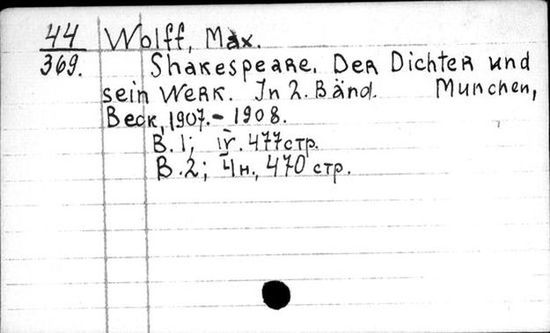 44
369.
Wolff, Max.
Shakespeare. Der Dichter und
sein Werk. In 2. Bänd. Munchen,
Beck, 1907.-1908.
B. 1; IV. 477 стр.
B. 2; 4 н., 470 стр.